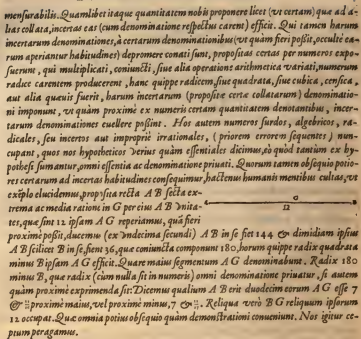 mensurabilis. Quamlibet itaque quantitatem nobis proponere licet (vt certam) quæ ad a-
lias collata, incertas eas (cum denominatione respectu carent) efficit. Qui tamen harum
incertarum denominationes, à certarum denominationibus (vt quàm fieri poßit, occultè ea
rum aperiantur habitudines) depromere conati sunt, propositas certas per numeros expo-
suerunt, qui multiplicati, coniuncti, siue alia operatione arithmetica variati, numerum
radice carentem producerent, hanc quippe radicem, siue quadrata, siue cubica, censica,
aut alia quæuis fuerit, harum incertarum (propositæ certæ collatarum) denominatio-
ni imponunt, vt quàm proximè ex numeris certam quantitatem denotantibus, incer-
tarum denominationes euellere poßint. Hos autem numeros surdos, algebricos, ra-
dicales, seu incertos aut impropriè irrationales, (priorem errorem sequentes) nun-
cupant, quos nos hypotheticos verius quàm essentiales dicimus, eò quòd tantùm ex hy-
pothesi sumantur, omni essentia ac denominatione priuati. Quorum tamen obsequio potio-
res certarum ad incertas habitudines consequimur, hactenus humanis mentibus cultas, vt
exẽplo elucidemus, proposita recta A B secta ex-
trema ac media ratione in G per eius A B vnita-
tes, quæ sint 12 ipsam A G reperiamus, quã fieri
proximè poßit, ducemus (ex vndecima secundi) A B in se fiet 144 & dimidiam ipsius
A B scilicet B in se, fient 36, quæ coniuncta componunt 180, horum quippe radix quadrata
minus B ipsam A G efficit. Quare maius segmentum A G denominabunt. Radix 180
minus B, quæ radix (cùm nulla sit in numeris) omni denominatione priuatur, si autem
quàm proximè exprimenda sit: Dicemus qualium A B erit duodecim eorum A G esse 7
& proximè maius, vel proximè minus, 7 & . Reliqua verò B G reliquum ipsorum
12 occupat. Quæ omnia potius obsequio quàm demonstrationi conueniunt. Nos igitur cę-
ptum peragamus.
G
12